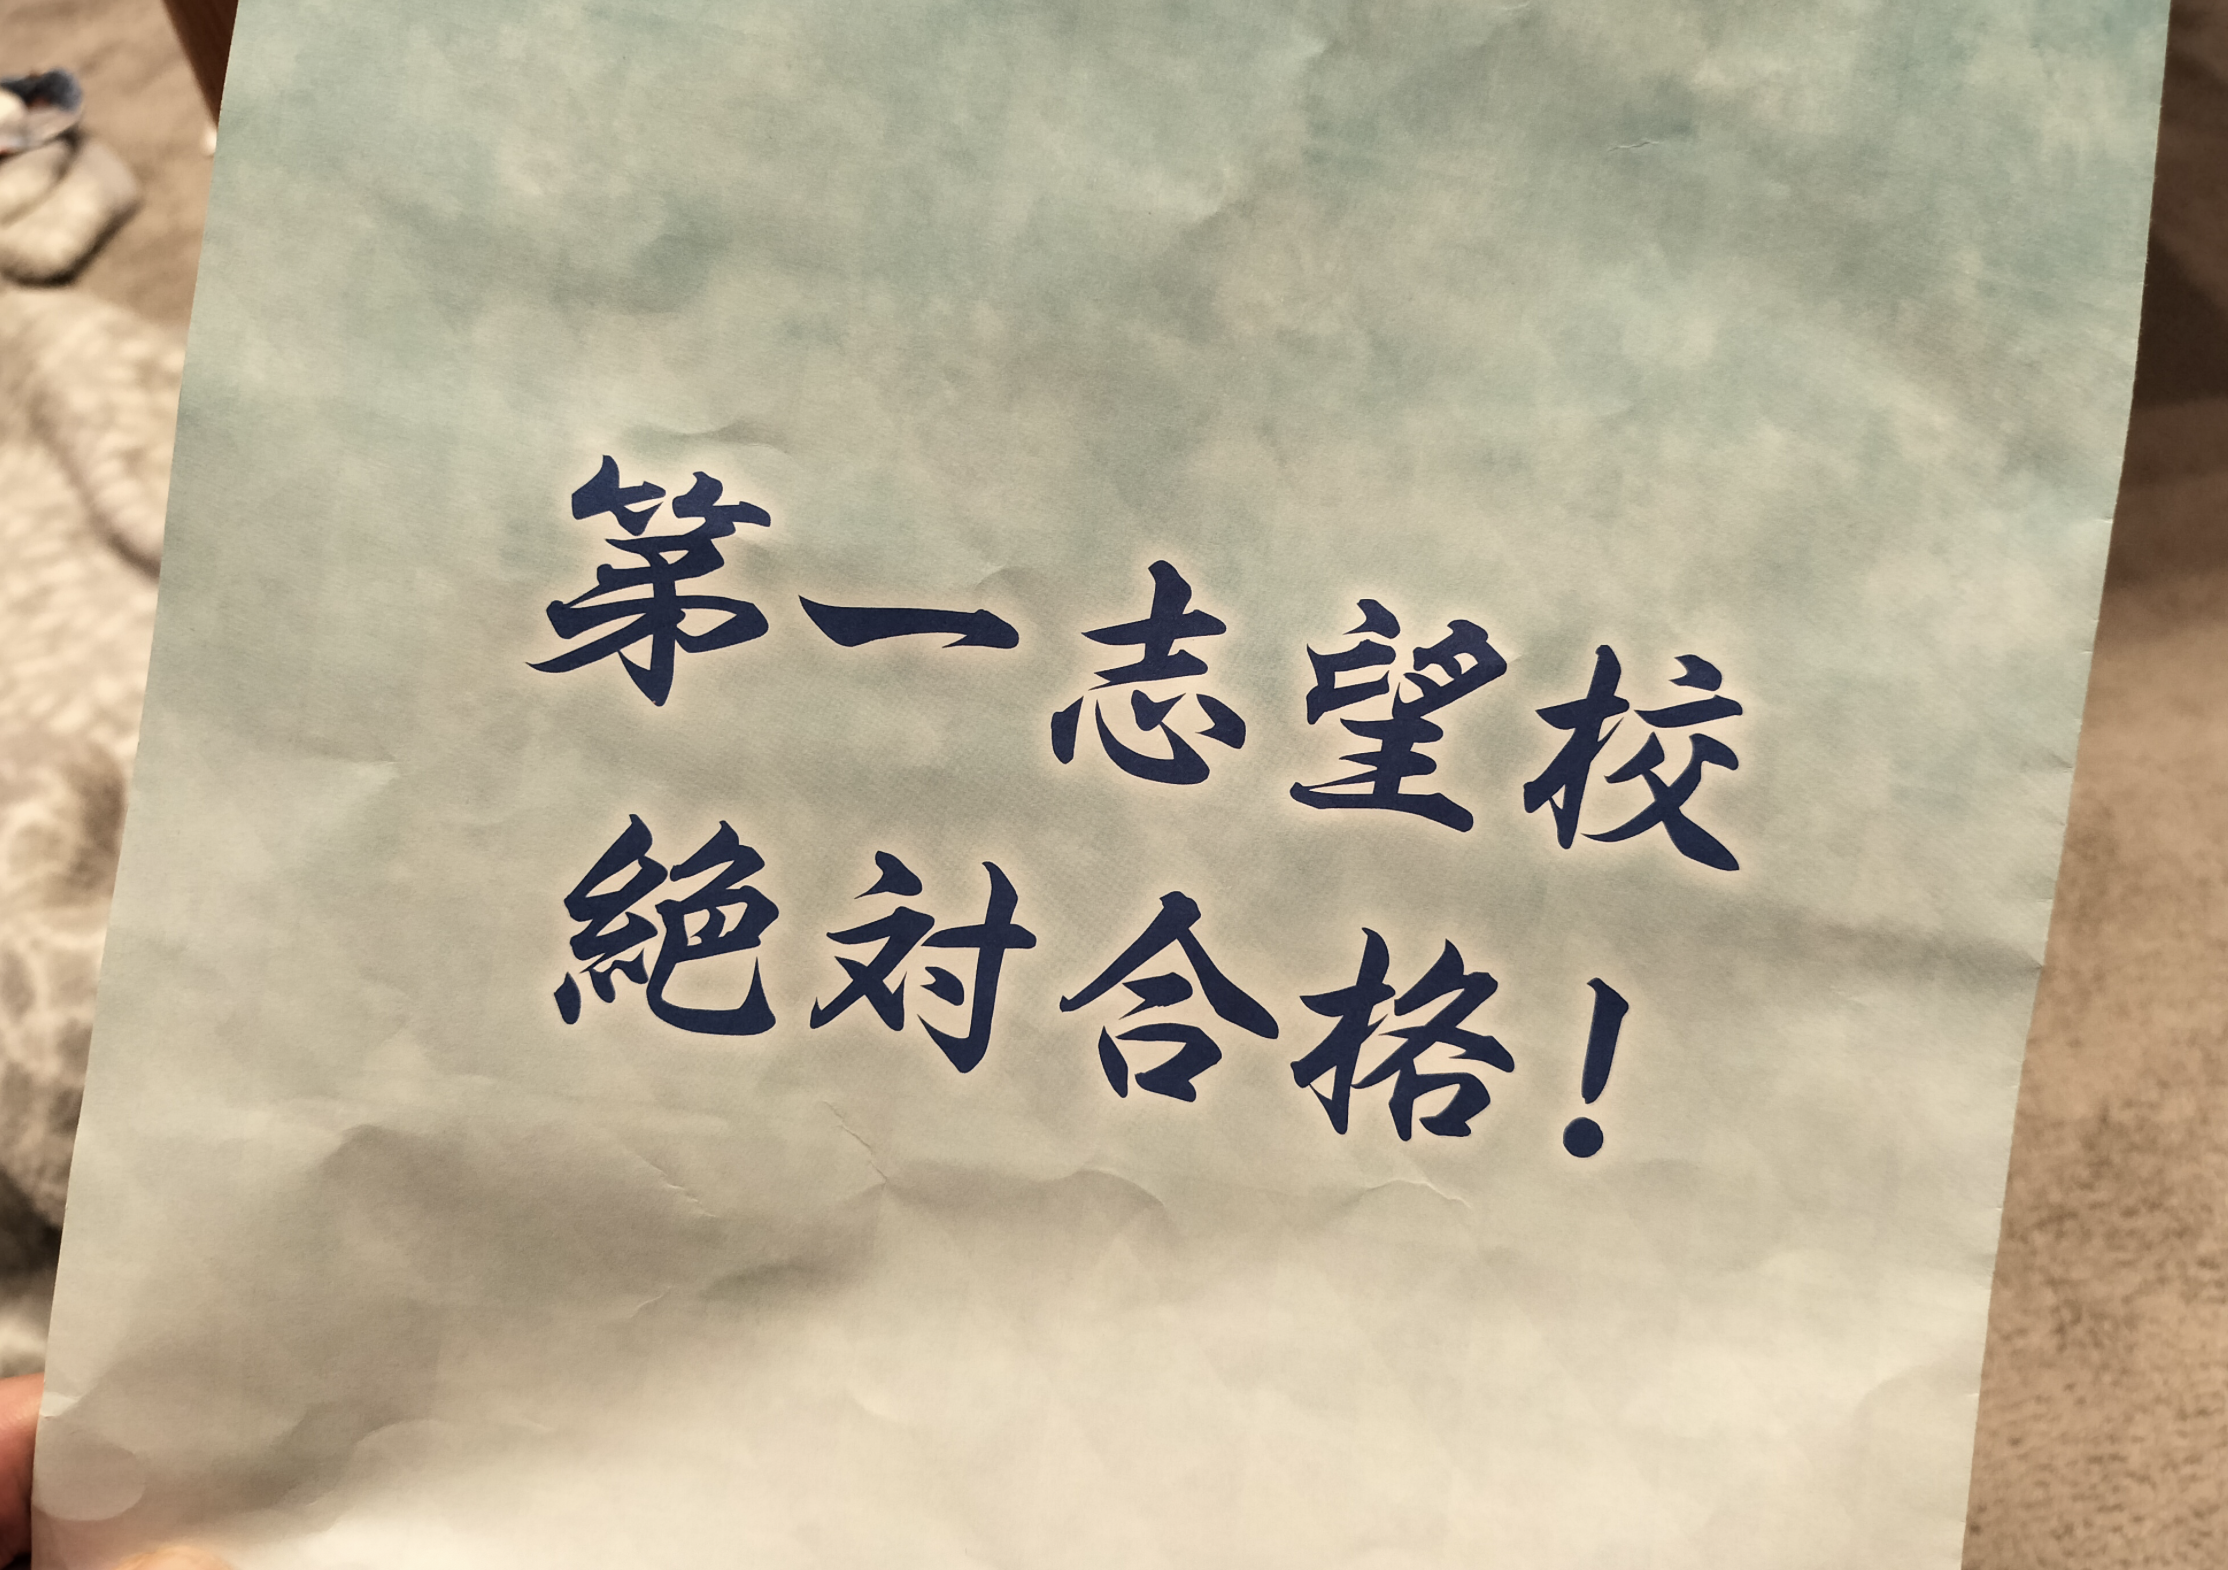 第一志望校
絶対合格!